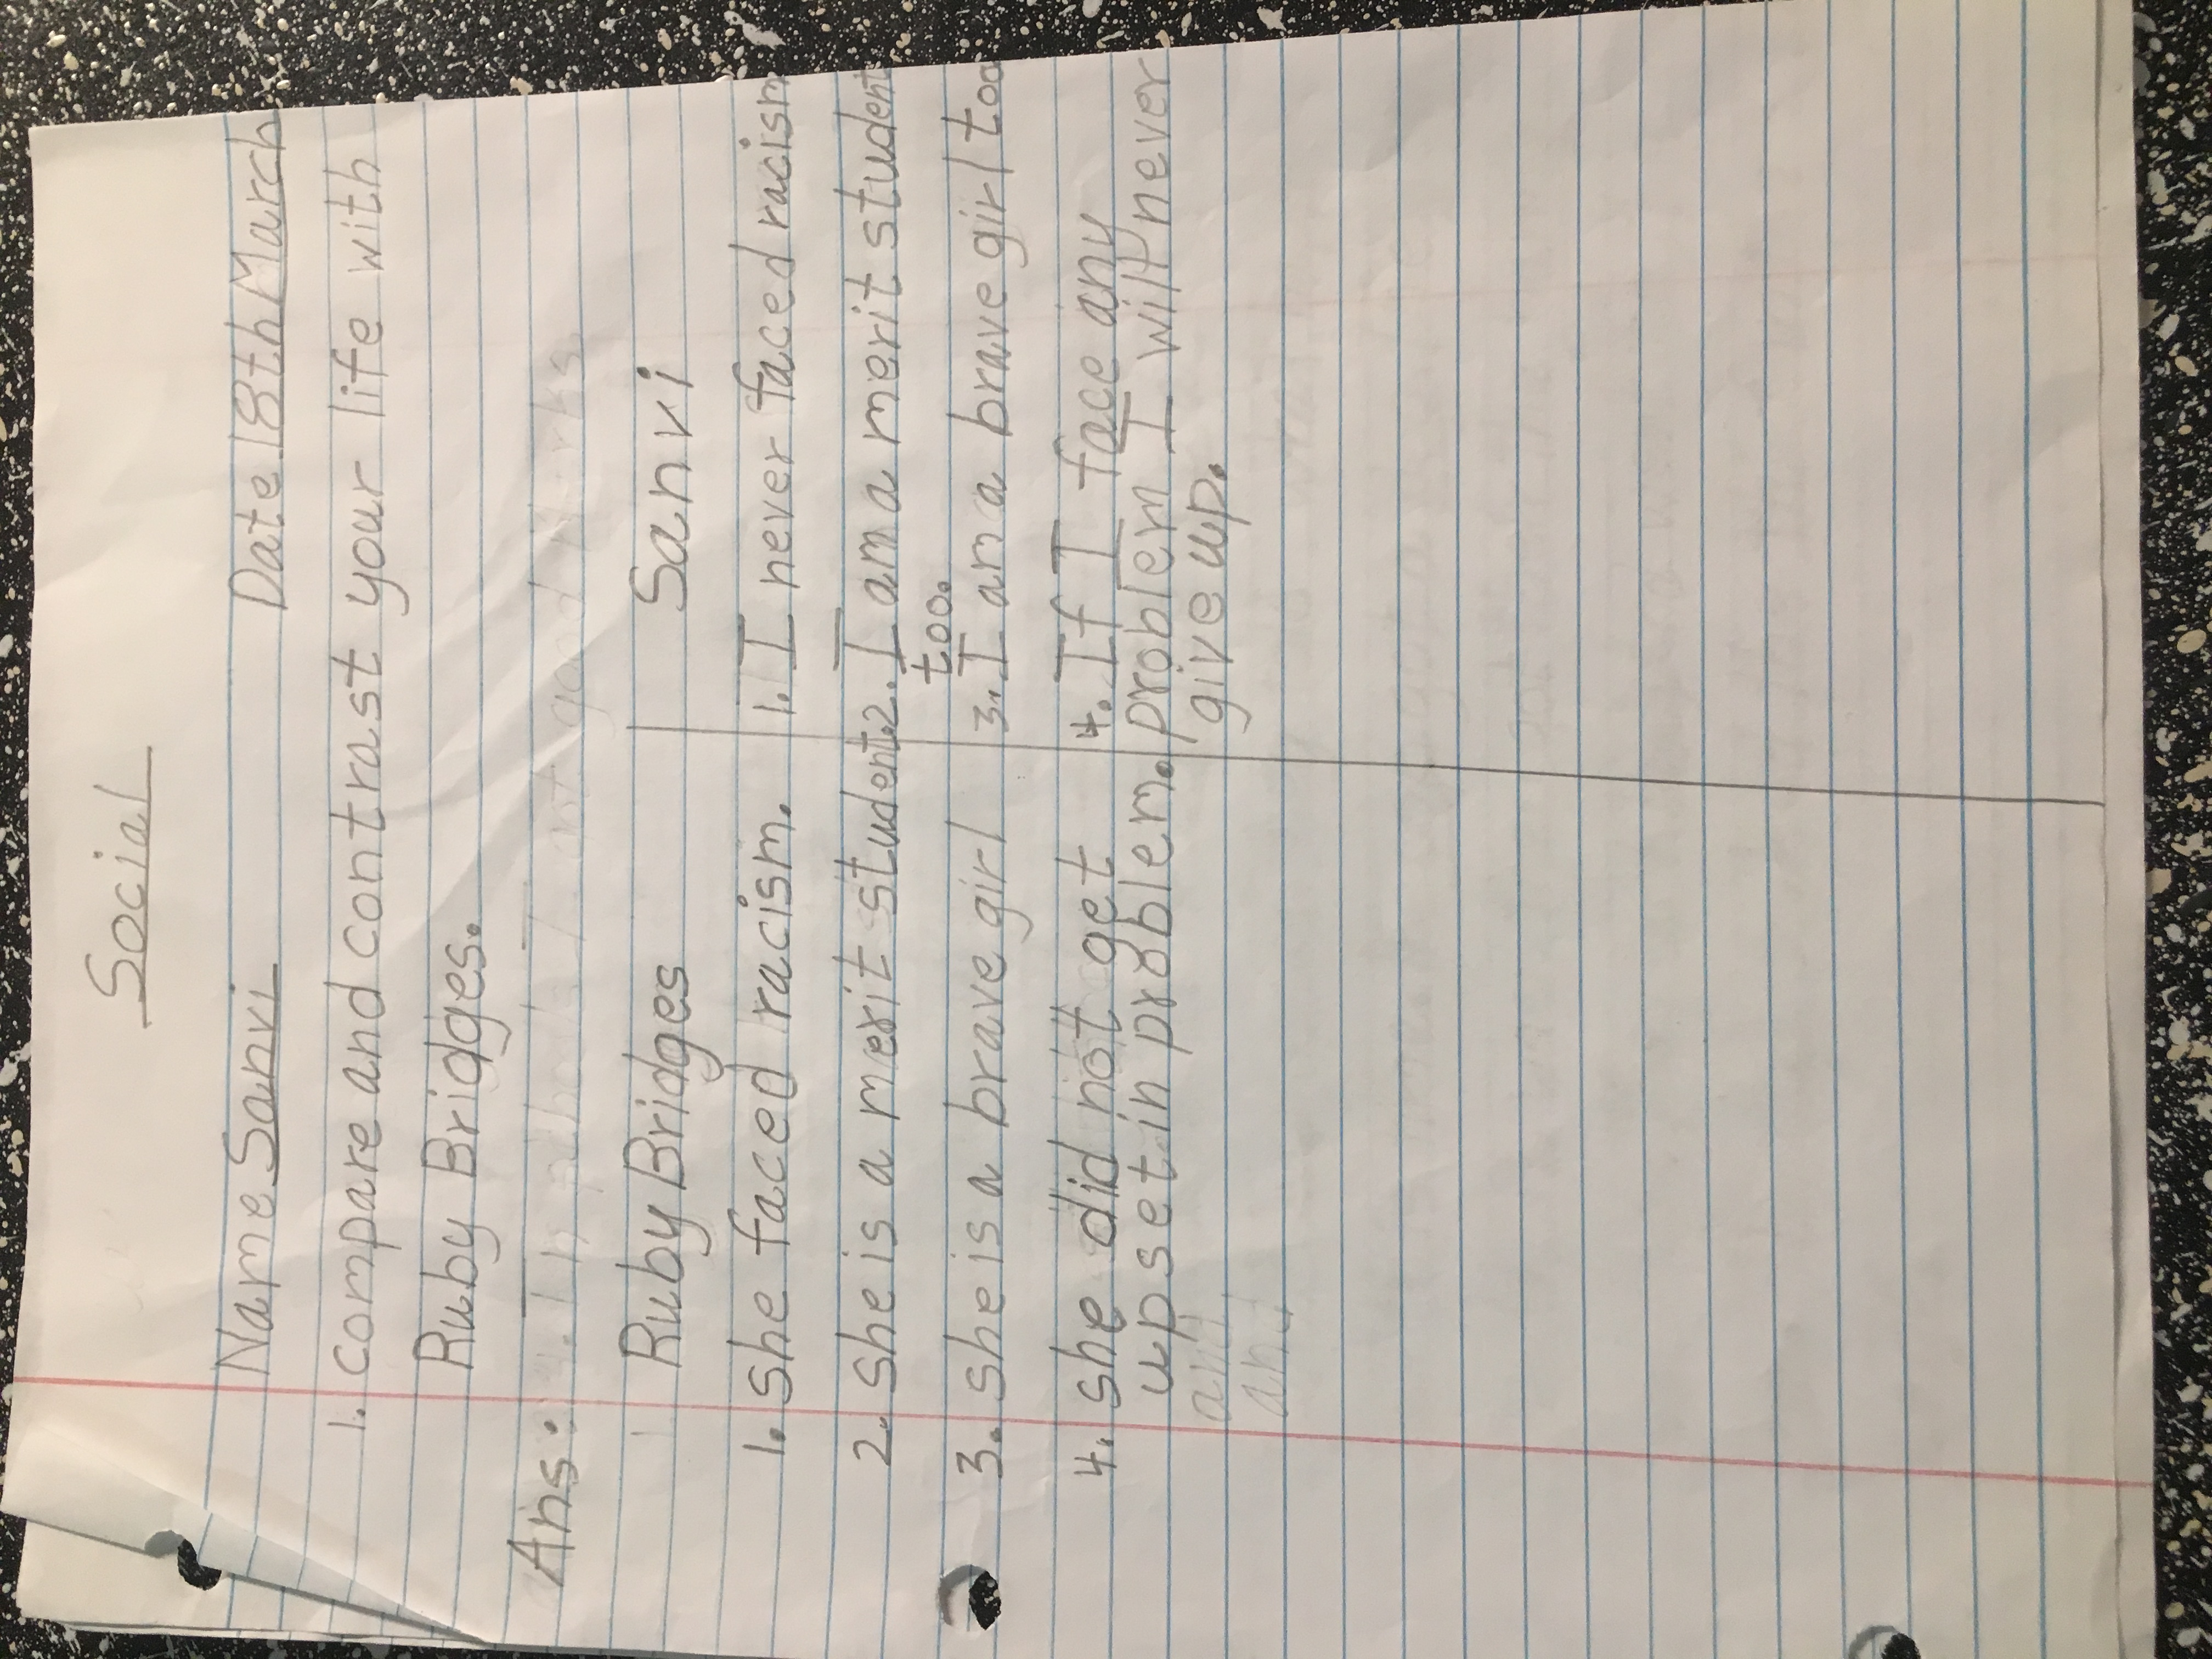 Social
Name Sanvi Date 18th March
1. compare and contrast your life with
Ruby Bridges.
Ans:
Ruby Bridges Sanvi
1. she faced racism. 1. I never faced racism
2. she is a merit student. 2. I am a merit student
too.
3. she is a brave girl 3. I am a brave girl too
4. she did not get 4. If I face any
upset in problem. problem I will never
and give up.
and